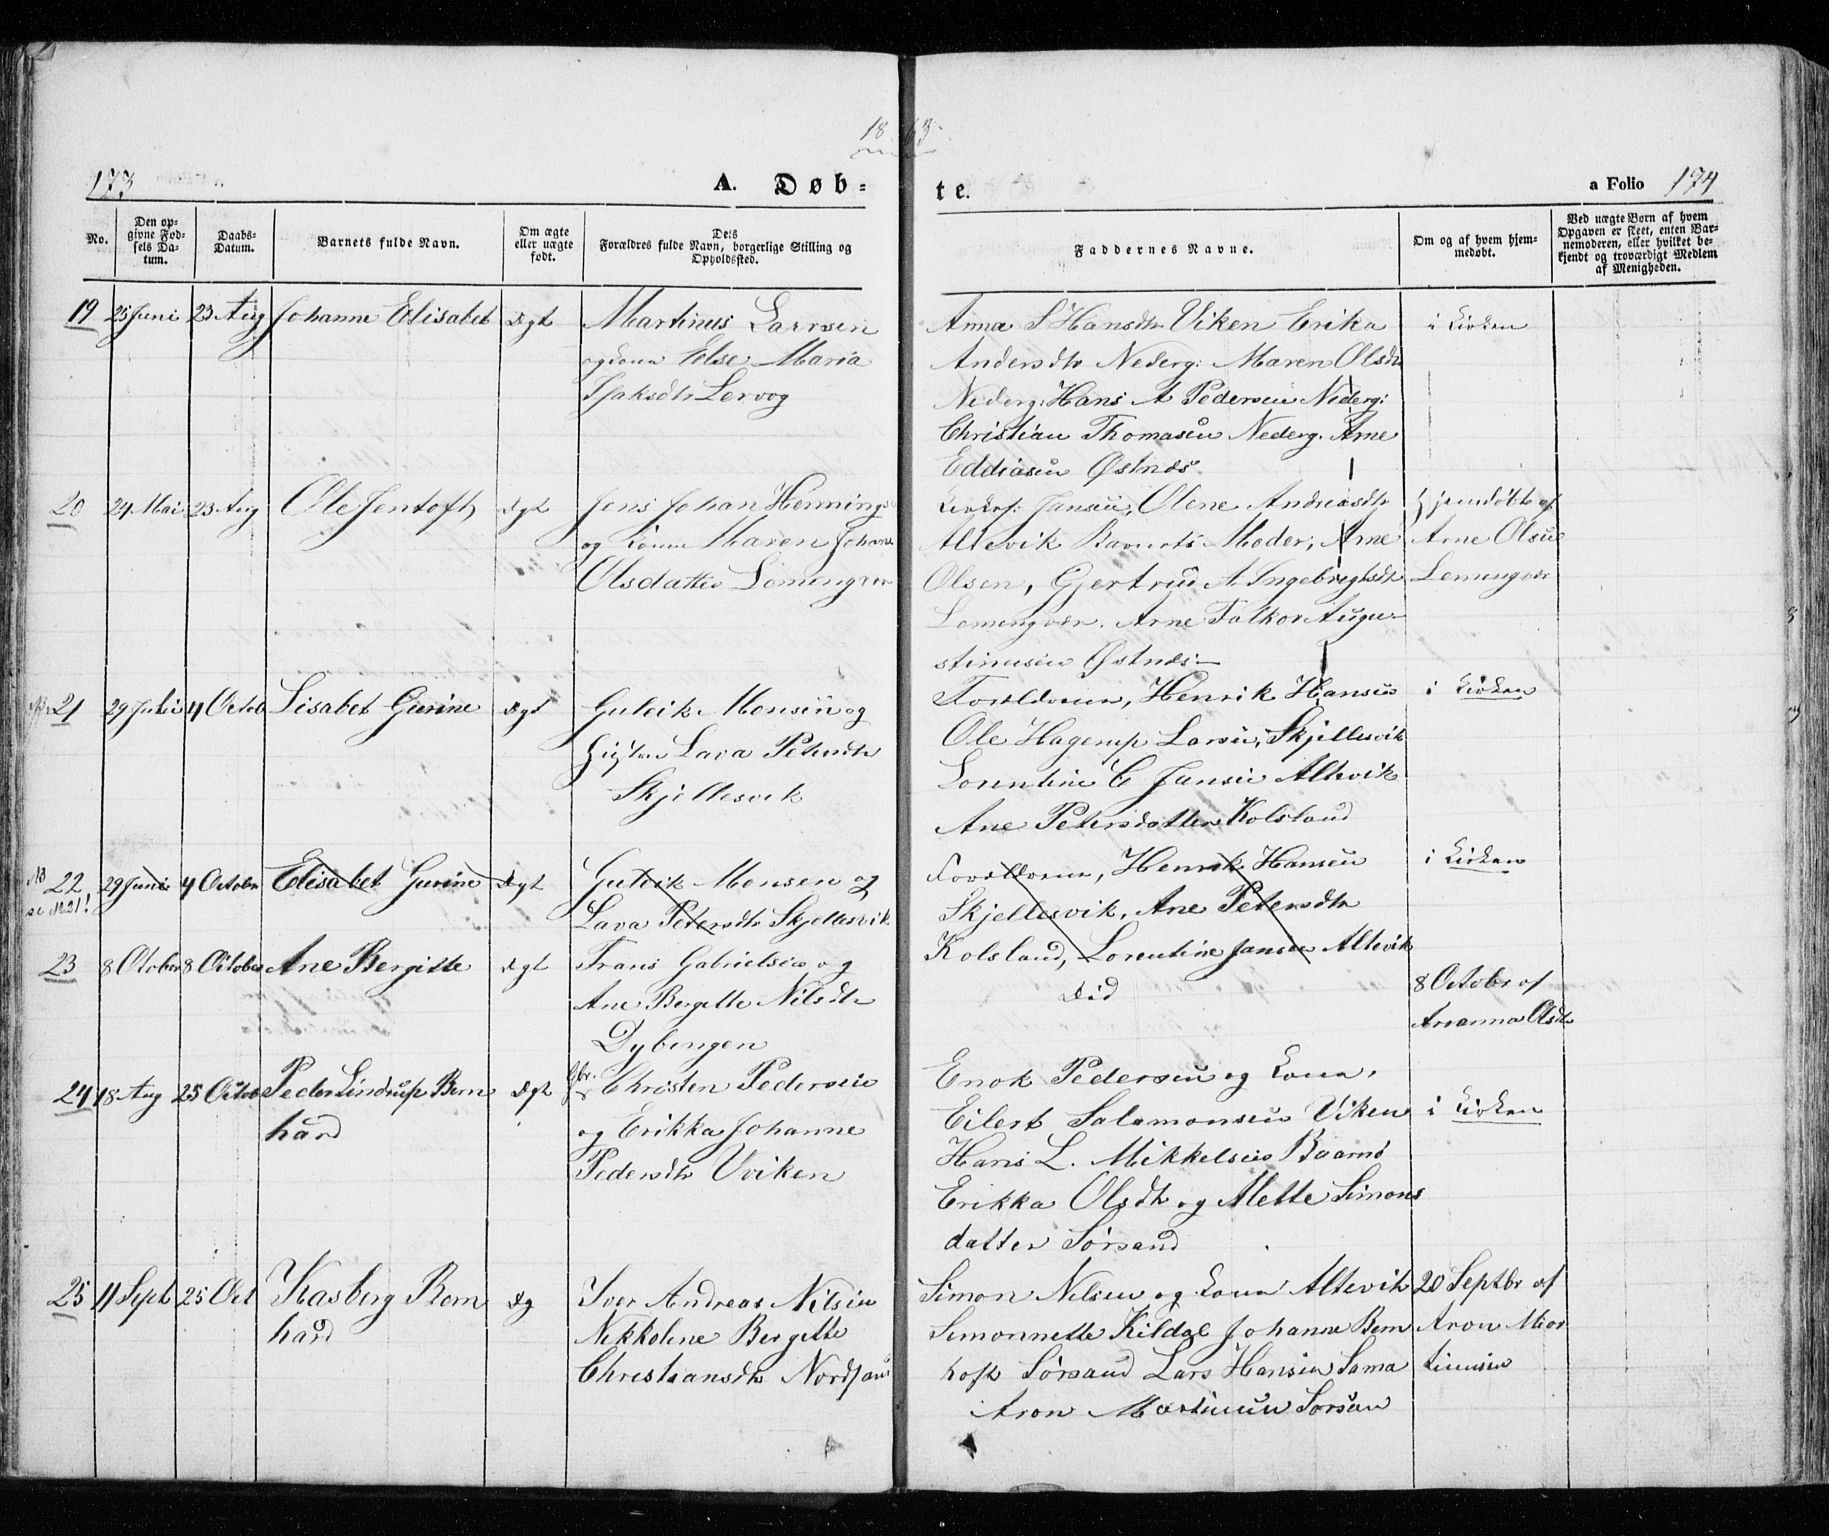 18 63
173
A. Døb-
te.
a Folio 174
No.
Den op-
givne Fød-
sels Da-
tum.
Daabs-
Datum.
Barnets fulde Navn.
Om ægte
eller uægte
født.
Dets
Forældres fulde Navn, borgerlige Stilling og
Opholdssted.
Faddernes Navne.
Om og af hvem hjem-
medøbt.
Ved uægte Born af hvem
Opgaven er skeet, enten Bar-
nemoderen, eller hvilket be-
kjendt og troværdigt Medlem
af Menigheden.
19 25 Juni 23 Aug Johanne Elisabet Ægt Martinus Larsen
og Kone Else Maria
Lervog
Anna S Hansdtr Viken Erika
Andersdtr Nederg: Maren Olsdtr
Nederg: Hans A Pedersen Nederg:
Christian Thomasen Nederg. Arne
Eddiasen Østnæs
i Kirken
20 24 Mai 23 Aug Ole Jentoft Ægt Jens Johan Henning
og Kone Maren Johan
Olsdatter
Jansen, Olene Andreasdtr
Altevik Barnets Moder, Arne
Olsen, Gjertrud A Ingebregtsdtr
Arne Falkor Augu-
stinusen Østnæs
hjemdøbt af
Arne Olsen
21 29 Juli 4 Octob Lisabet Gurine Ægt Gulleik Monsen og
Hustru Lava Petersdtr
Skjellesvik
Forældrene, Henrik Hansen
Ole Hagerup Larsen, Skjellesvik
Lorentine C Jansen Altevik
Ane Petersdatter Kolsland
i Kirken
NB 22 29 Juni 4 Octobr Elisabet Gurine Ægt Gulleik Monsen og
se N 21! Lava Petersdtr Skjellesvik
Forældrene, Henrik Hansen
Skjellesvik, Ane Petersdtr
Kolsland, Lorentine Jansen Altevik
i Kirken
23 8 Otober 8 Oitober Ane Bergitte Ægt Frans Gabrielsen og
Ane Bergette Nilsdtr
Dybengen
Død
8 Octobr af
Arianna Olsdtr
24 18 Aug 25 Octob Peder Lindrup Bern
hard
Ægt Gbr. Christen Pedersen
og Erikka Johanne
Pedersdtr Uviken
Enok Pedersen og Kone,
Eilert Salamonsen Viken
Hans L. Mikkelsen
Erikka Olsdtr og Mette Simons
datter Sørsand
i Kirken
25 11 Sept 25 Oct Kasberg Bern
hard
Æg Iver Andreas Nilsen
Nikkoline Bergette
Christiansdtr
Simon Nilsen og Kone Altevik
Simonnette Kildal Johanne Bern
hoft Sørsand Lars Hansen Sama
Aron Martinusen Sørsan
20 Septbr af
Aron Mar
tinusen